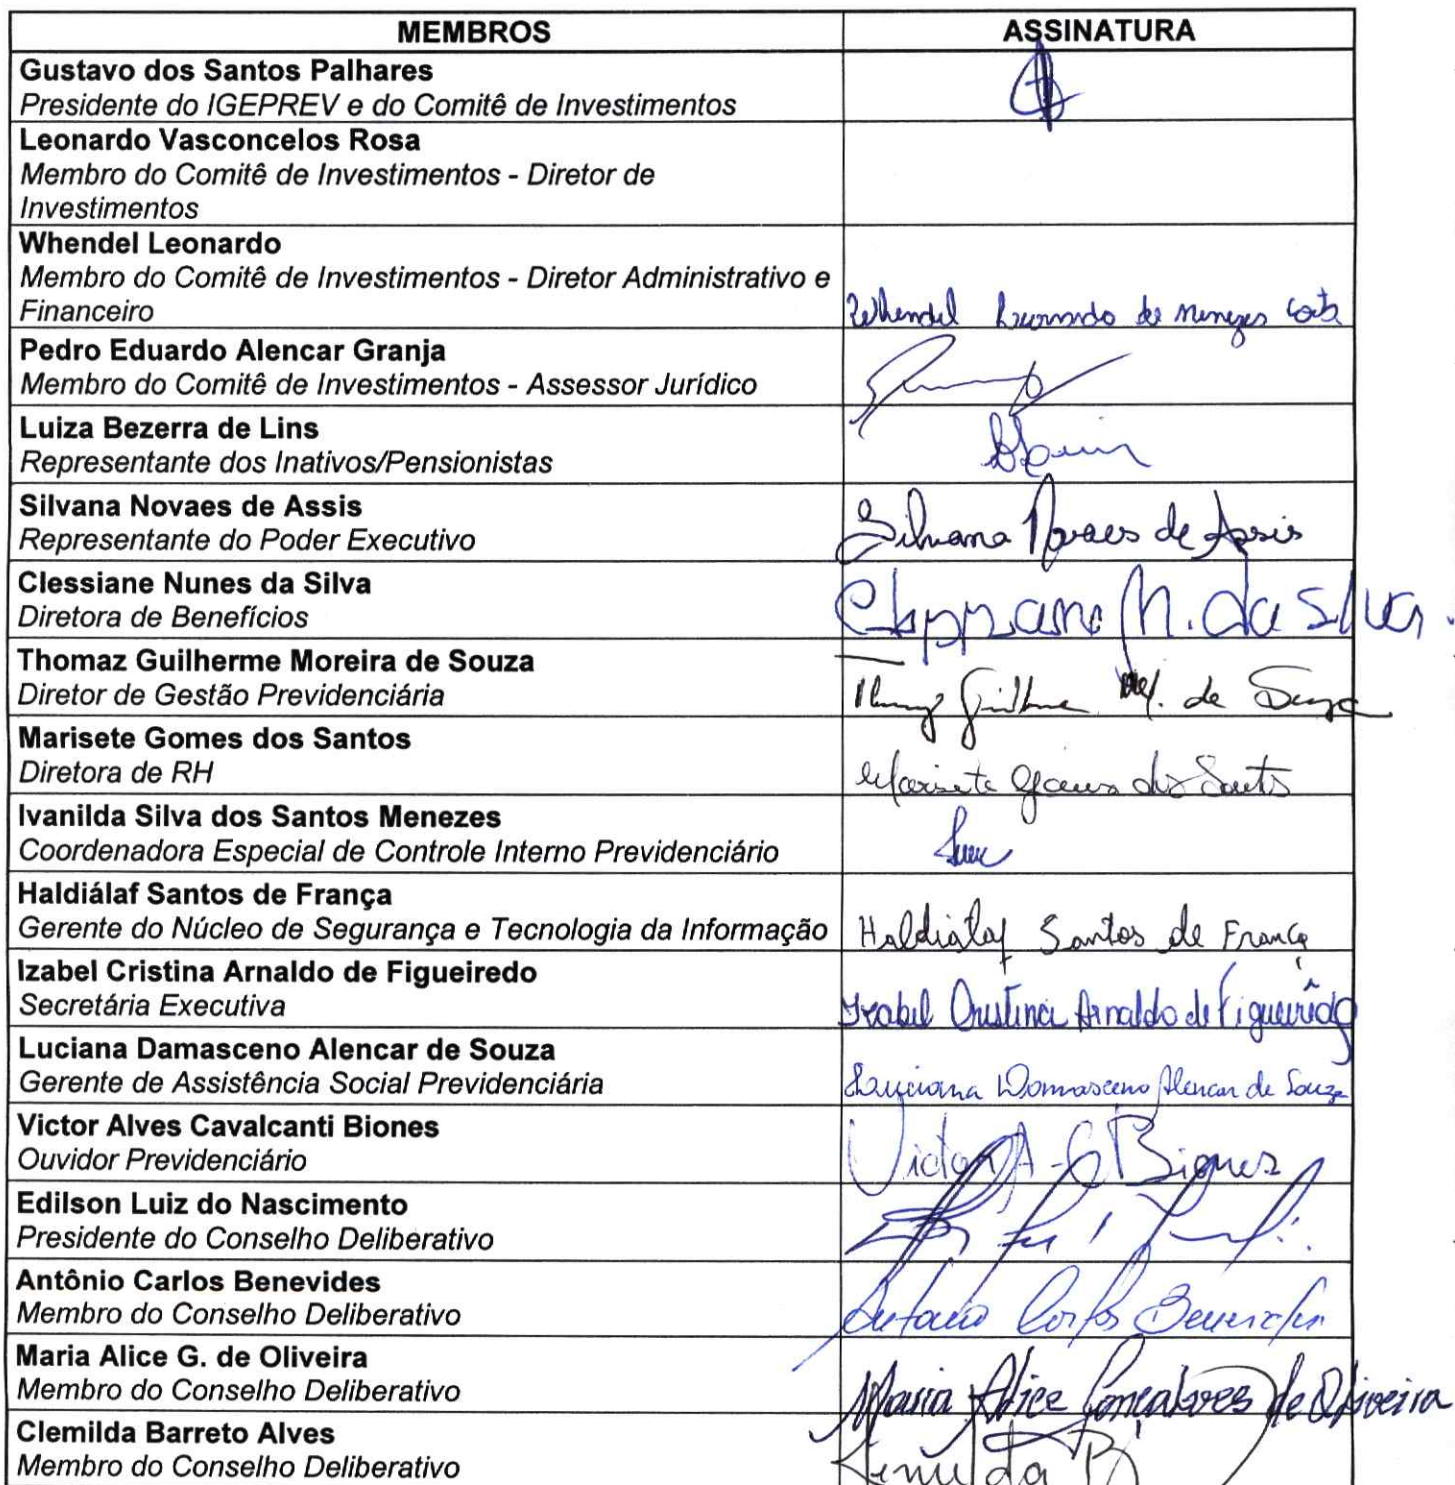 MEMBROS ASSINATURA
Gustavo dos Santos Palhares
Presidente do IGEPREV e do Comitê de Investimentos
Leonardo Vasconcelos Rosa
Membro do Comitê de Investimentos - Diretor de
Investimentos
Whendel Leonardo
Membro do Comitê de Investimentos - Diretor Administrativo e
Financeiro Whendel Leonardo de Menezes Costa
Pedro Eduardo Alencar Granja
Membro do Comitê de Investimentos - Assessor Jurídico
Luiza Bezerra de Lins
Representante dos Inativos/Pensionistas
Silvana Novaes de Assis
Representante do Poder Executivo Silvana Novaes de Assis
Clessiane Nunes da Silva
Diretora de Benefícios Clessiane N. da Silva
Thomaz Guilherme Moreira de Souza
Diretor de Gestão Previdenciária Guilherme M. de Souza
Marisete Gomes dos Santos
Diretora de RH Marisete Gomes dos Santos
Ivanilda Silva dos Santos Menezes
Coordenadora Especial de Controle Interno Previdenciário
Haldiálaf Santos de França
Gerente do Núcleo de Segurança e Tecnologia da Informação Haldiálaf Santos de França
Izabel Cristina Arnaldo de Figueiredo
Secretária Executiva Izabel Cristina Arnaldo de Figueirêdo
Luciana Damasceno Alencar de Souza
Gerente de Assistência Social Previdenciária Luciana Damasceno Alencar de Souza
Victor Alves Cavalcanti Biones
Ouvidor Previdenciário Victor A. C. Biones
Edilson Luiz do Nascimento
Presidente do Conselho Deliberativo
Antônio Carlos Benevides
Membro do Conselho Deliberativo Antonio Carlos Benevides
Maria Alice G. de Oliveira
Membro do Conselho Deliberativo Maria Alice Gonçalves de Oliveira
Clemilda Barreto Alves
Membro do Conselho Deliberativo